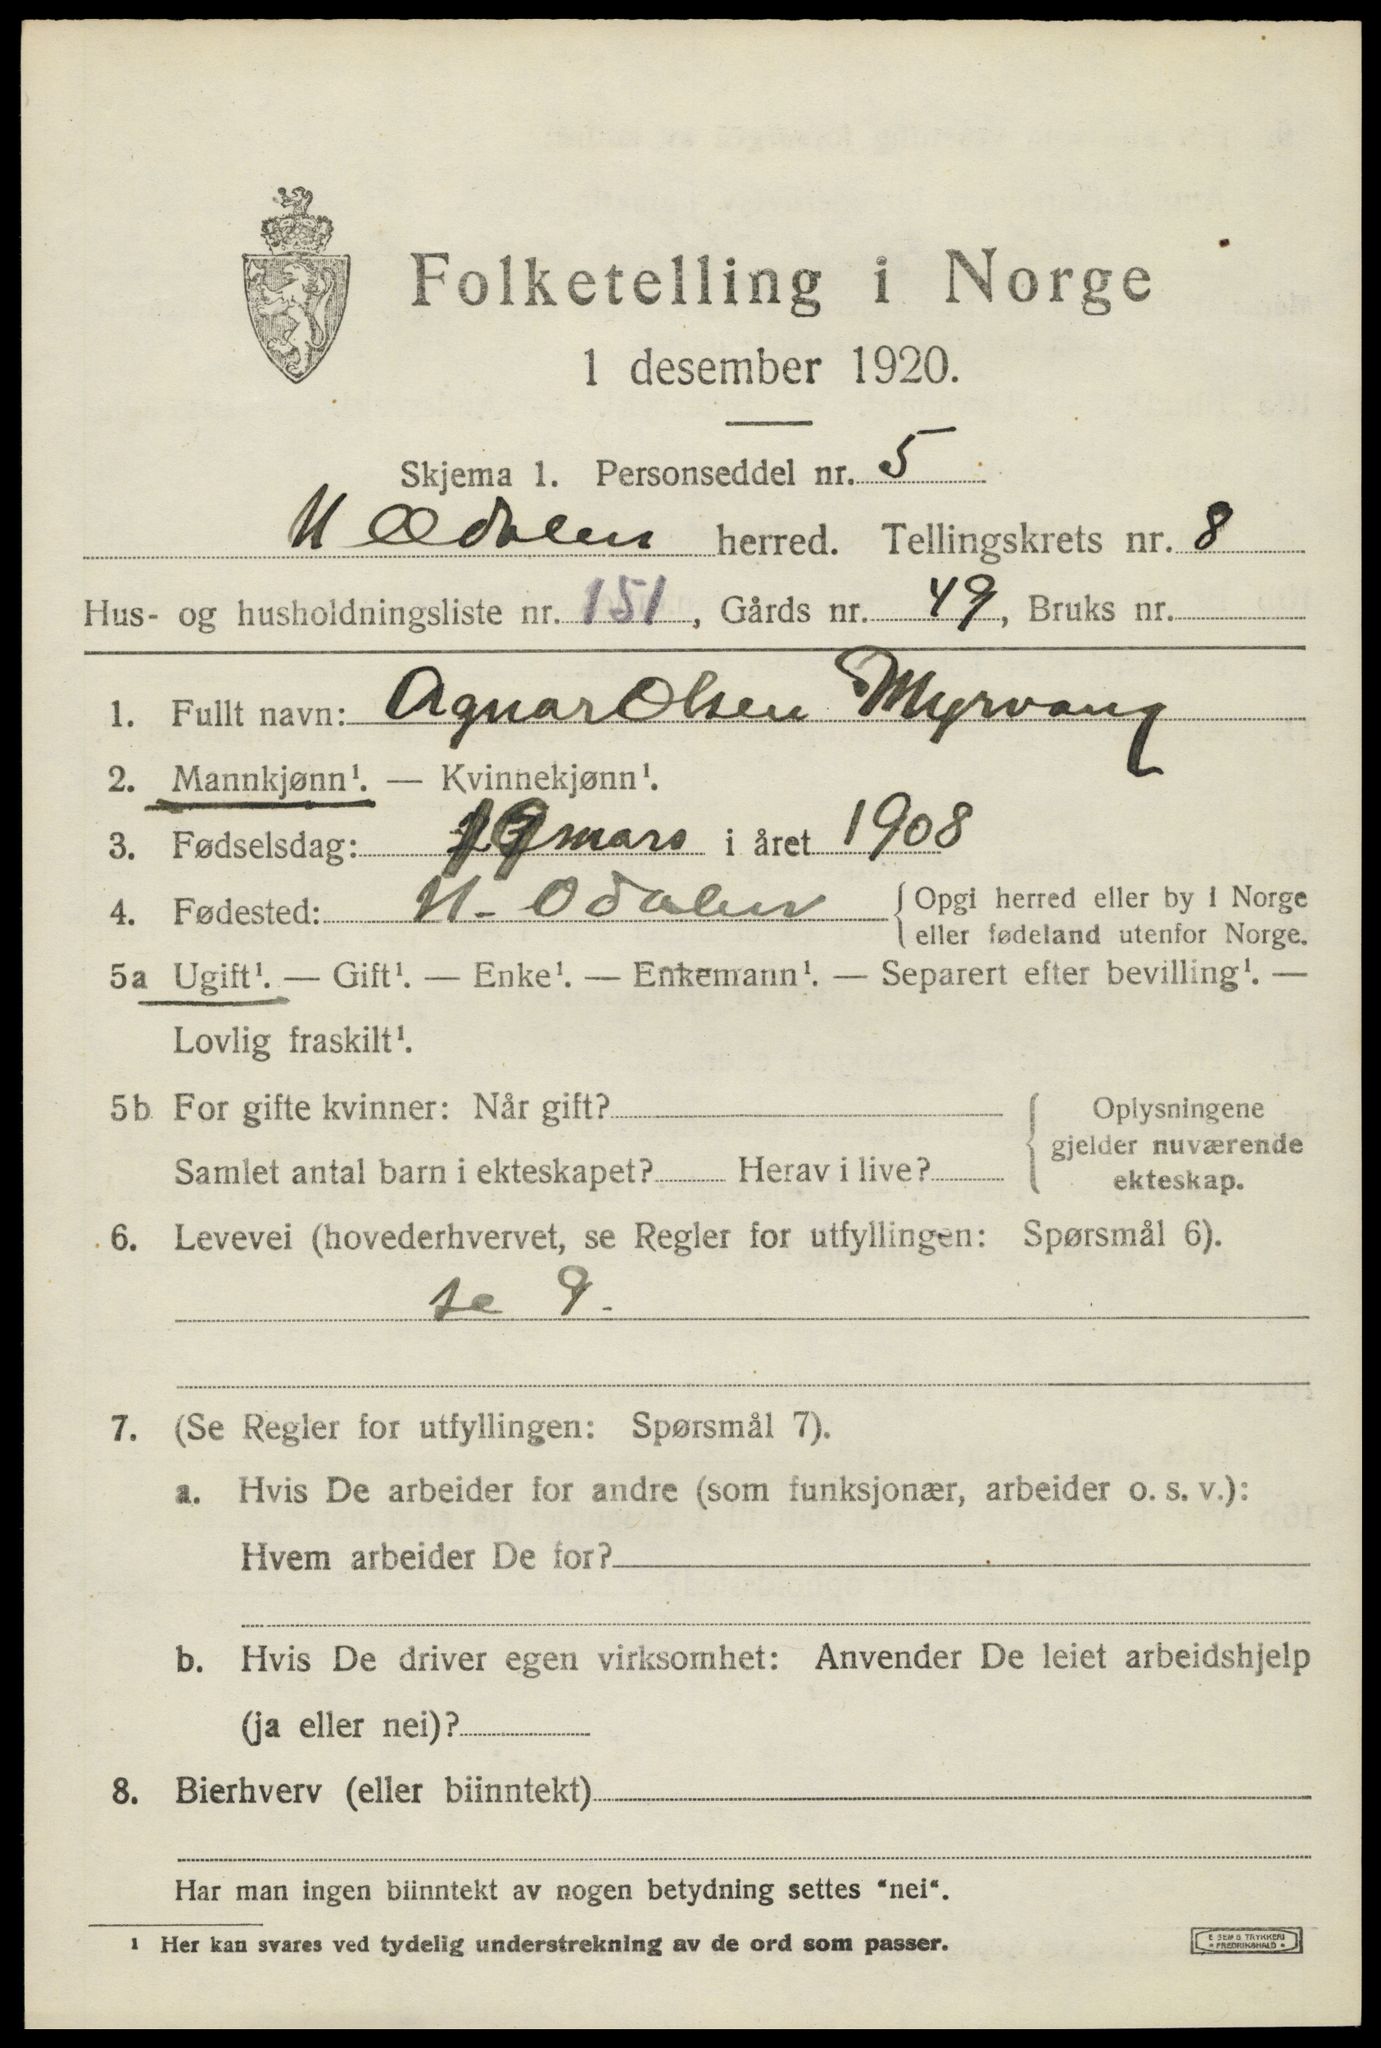 Folketelling i Norge
1 desember 1920.
Skjema 1. Personseddel nr. 5
N Odalen herred. Tellingskrets nr. 8
Hus- og husholdningsliste nr. 151, Gårds nr. 49, Bruks nr.
1. Fullt navn: Agnar Olsen Myrvang
2. Mannkjønn¹. — Kvinnekjønn¹.
3. Fødselsdag: mars i året 1908
4. Fødested: N. Odalen { Opgi herred eller by i Norge
eller fødeland utenfor Norge.
5a Ugift¹. — Gift¹. — Enke¹. — Enkemann¹. — Separert efter bevilling¹. —
Lovlig fraskilt¹.
5b For gifte kvinner: Når gift? { Oplysningene
gjelder nuværende
Samlet antal barn i ekteskapet? Herav i live? ekteskap.
6. Levevei (hovederhvervet, se Regler for utfyllingen: Spørsmål 6).
se 9.
7. (Se Regler for utfyllingen: Spørsmål 7).
a. Hvis De arbeider for andre (som funksjonær, arbeider o. s. v.):
Hvem arbeider De for?
b. Hvis De driver egen virksomhet: Anvender De leiet arbeidshjelp
(ja eller nei)?
8. Bierhverv (eller biinntekt)
Har man ingen biinntekt av nogen betydning settes "nei".
¹ Her kan svares ved tydelig understrekning av de ord som passer.
E SEMS TRYKKERI
• FREDRIKSHALD •